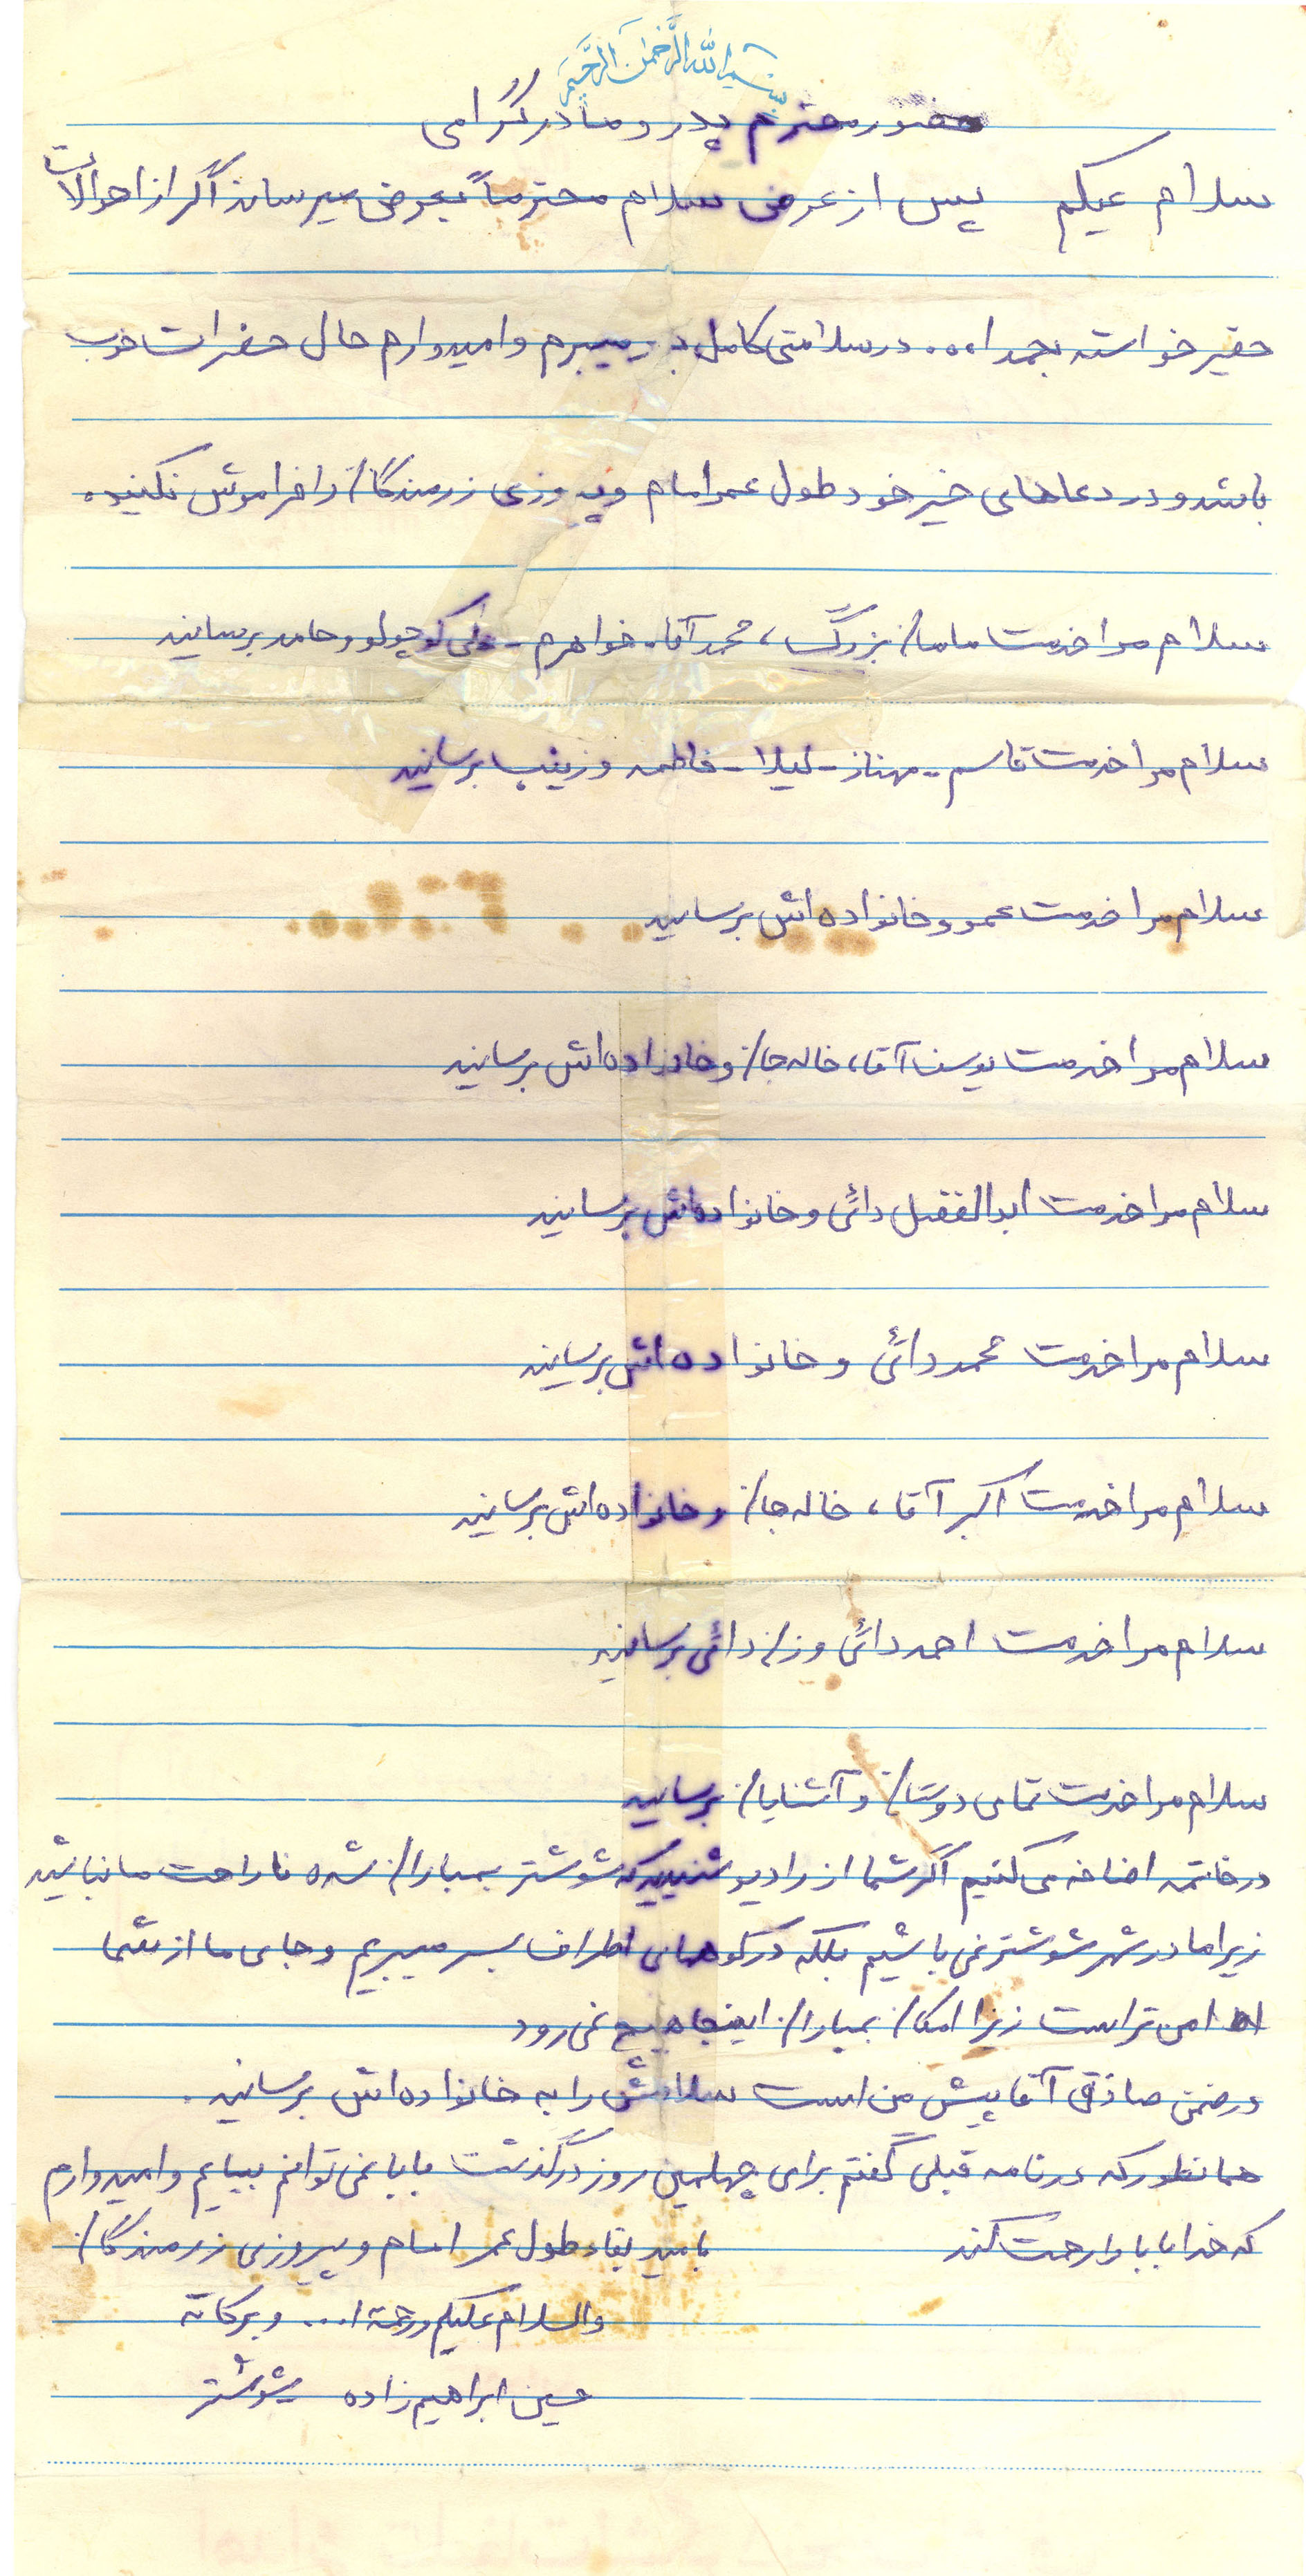 بسم الله الرحمن الرحیم
حضور محترم پدر و مادر گرامی
سلام علیکم پس از عرض سلام محترماً بعرض میرساند اگر از احوالات
حقیر خواسته بحمدا... در سلامتی کامل بسر میبرم و امیدوارم حال حضرات خوب
باشد و در دعاهای خیر خود طول عمر امام و پیروزی رزمندگان را فراموش نکنید.
سلام مرا خدمت مامان بزرگ، محمد آقا، خواهرم - علی کوچولو و حامد برسانید
سلام مرا خدمت قاسم - مهناز - لیلا - فاطمه و زینب برسانید
سلام مرا خدمت عمو و خانواده اش برسانید
سلام مرا خدمت یوسف آقا، خاله جان و خانواده اش برسانید
سلام مرا خدمت ابوالفضل دائی و خانواده اش برسانید
سلام مرا خدمت محمد دائی و خانواده اش برسانید
سلام مرا خدمت اکبر آقا، خاله جان و خانواده اش برسانید
سلام مرا خدمت احمد دائی و زن دائی برسانید
سلام مرا خدمت تمامی دوستان و آشنایان برسانید
در خاتمه اضافه می کنیم اگر شما از رادیو شنیدید که شوشتر بمباران شده ناراحت ما نباشید
زیرا ما در شهر شوشتر نمی باشیم بلکه در کوههای اطراف بسر میبریم و جای ما از شما
امن تر است زیرا امکان بمباران اینجا هیچ نمی رود
در ضمن صادق آقا پیش من است سلامش را به خانواده اش برسانید.
همانطور که در نامه قبلی گفتم برای چهلمین روز درگذشت بابا نمی توانم بیایم و امیدوارم
که خدا بابا را رحمت کند بامید بقاء طول عمر امام و پیروزی رزمندگان
والسلام علیکم ورحمة ا... وبرکاته
حسین ابراهیم زاده شوشتر